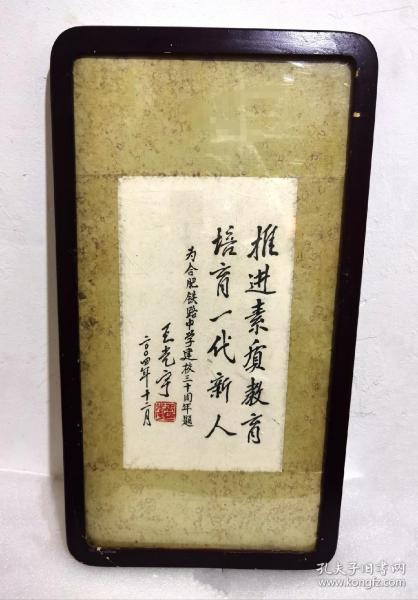 推进素质教育
培育一代新人
为合肥铁路中学建校三十周年题
王光宇
二〇〇四年十二月
孔夫子旧书网
www.kongfz.com